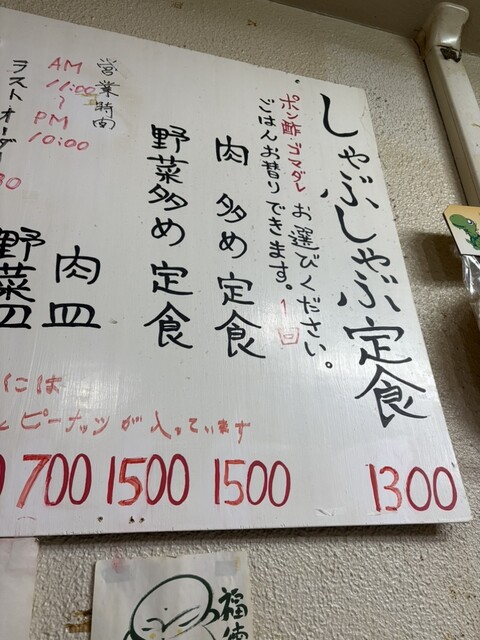 しゃぶしゃぶ定食
1300
ポン酢・ゴマダレ お選びください。
ごはんお替りできます。1回
肉 多め 定食
1500
野菜多め 定食
1500
営業時間
AM
11:00
～
PM
10:00
ラストオーダー
30
肉皿
700
野菜皿
には
ピーナッツが入っています
福徳